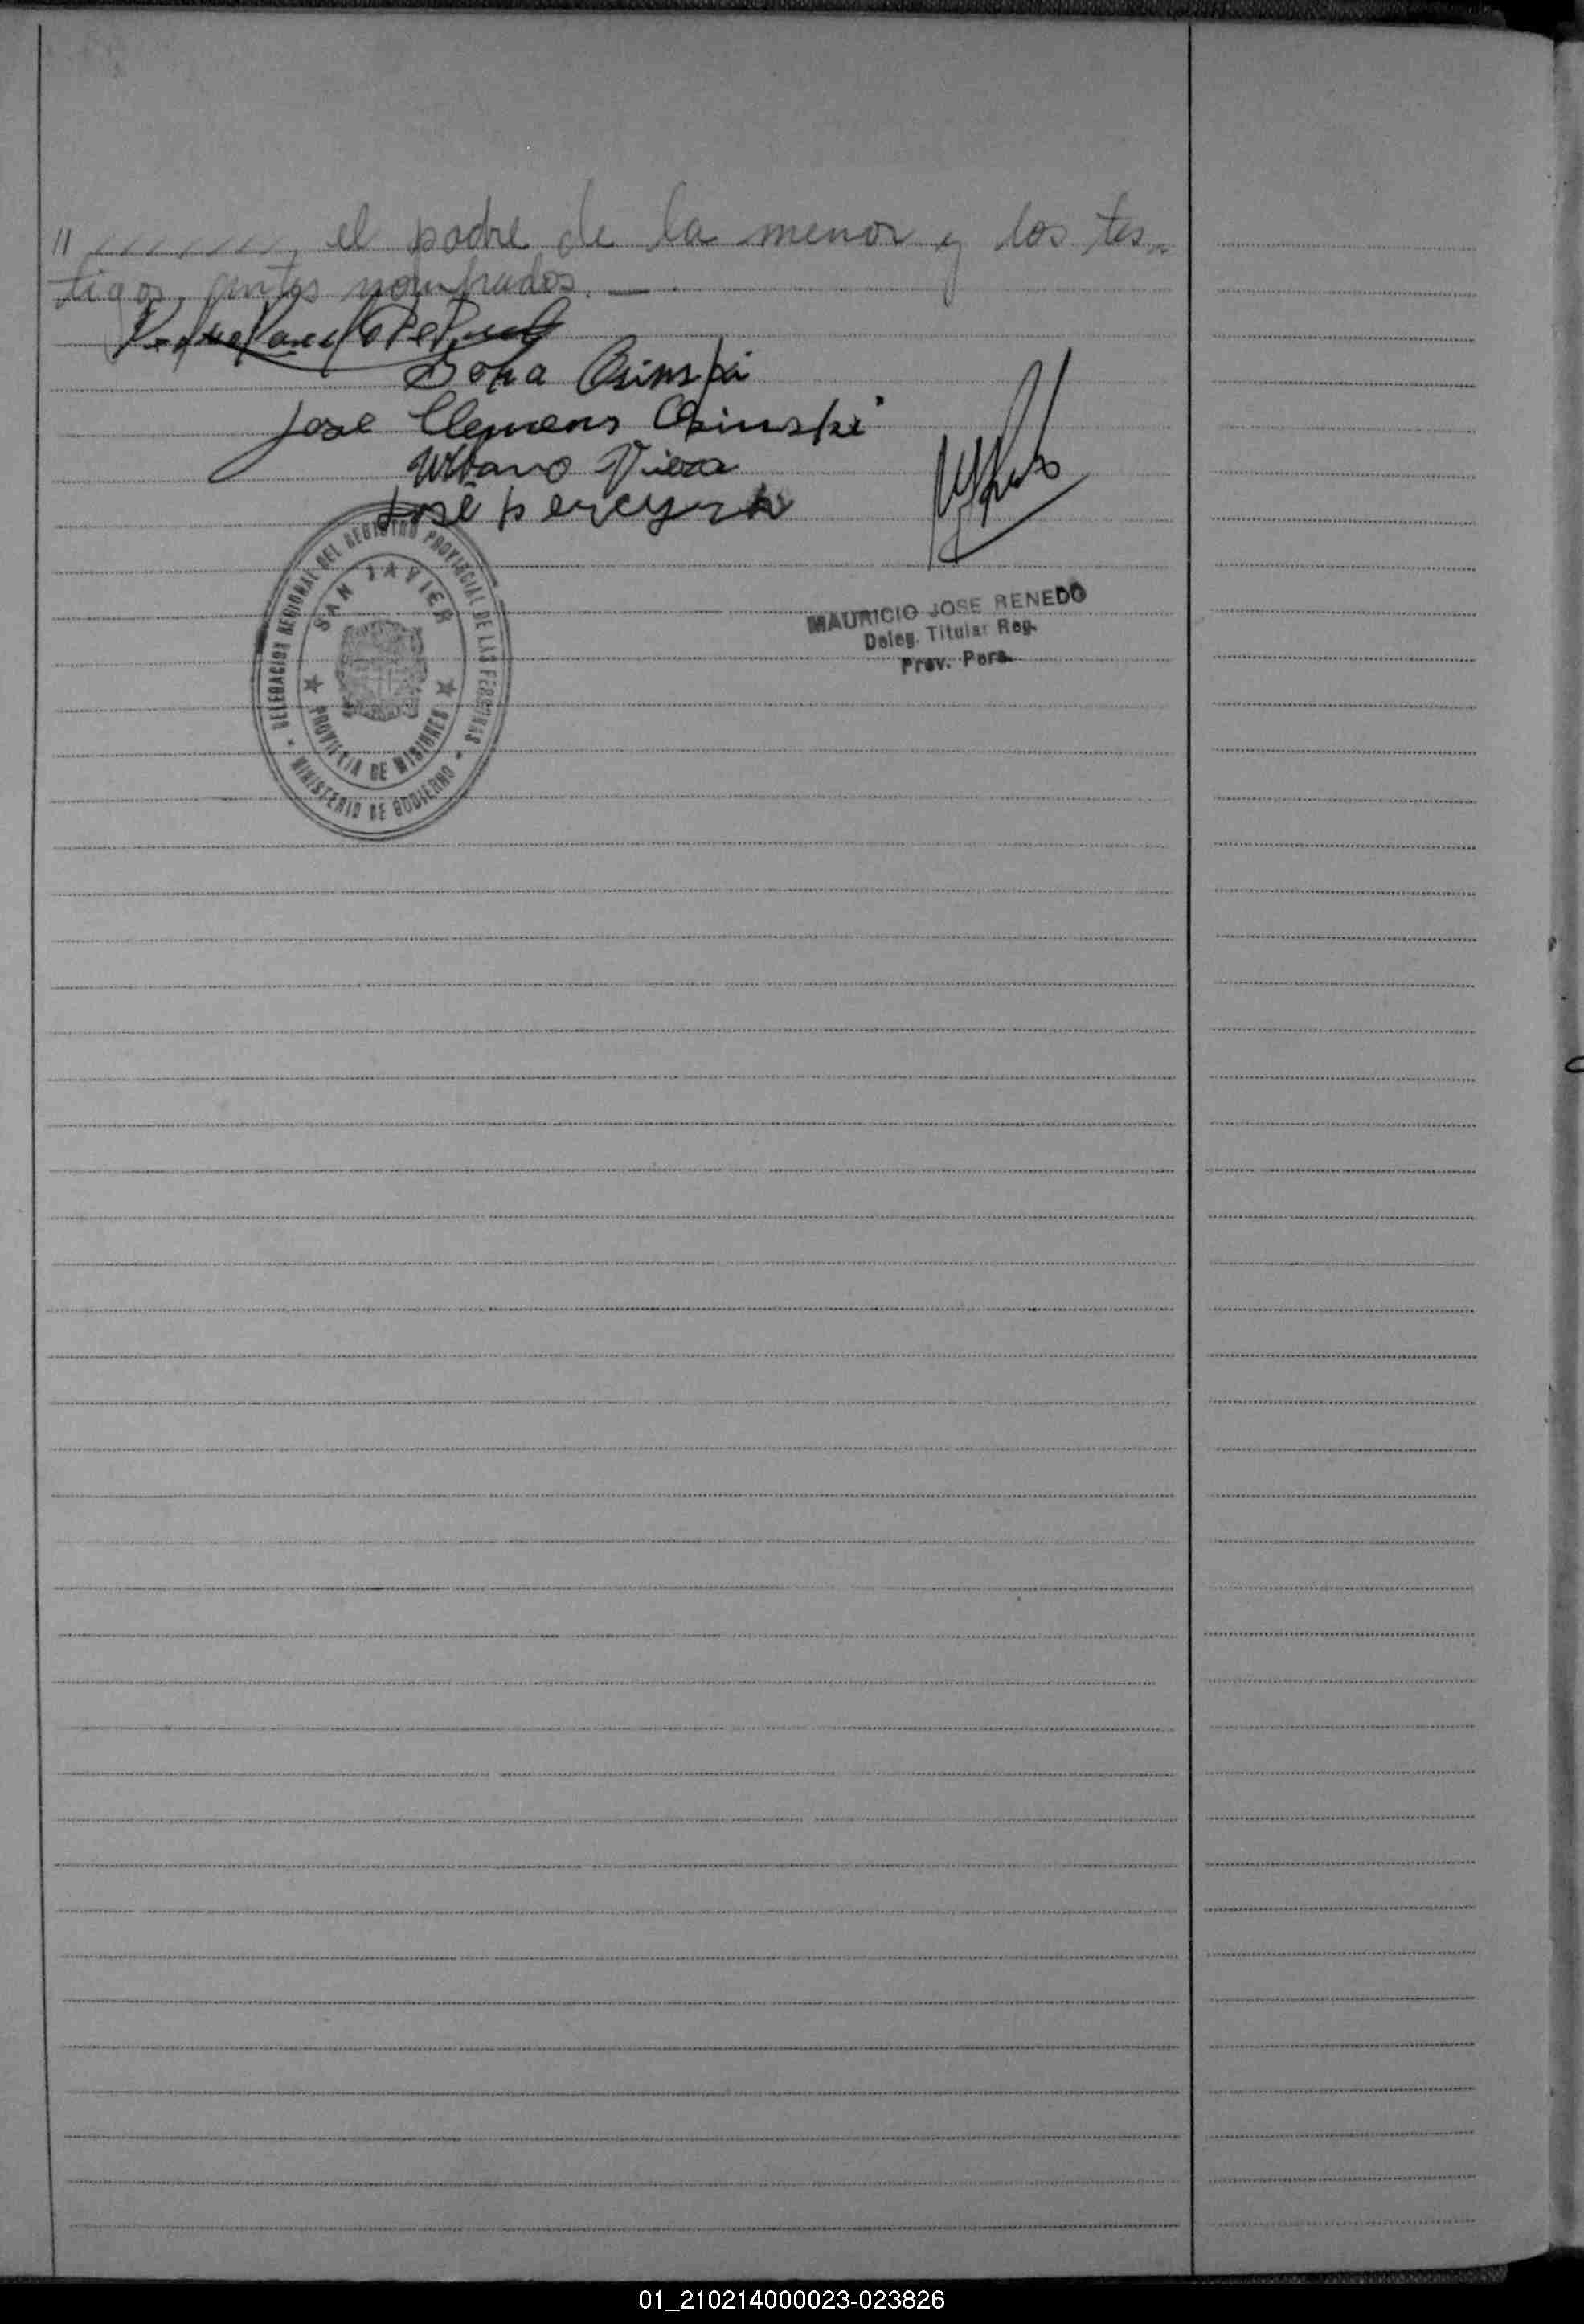 " el padre de la menor y los tes-
tigos, antes nombrados. —
Sofia Osinski
Jose Clemens Osinski
Urbano Viera
José pereyra
DELEGACION REGIONAL DEL REGISTRO PROVINCIAL DE LAS PERSONAS
SAN JAVIER
PROVINCIA DE MISIONES
MINISTERIO DE GOBIERNO
MAURICIO JOSE RENEDO
Deleg. Titular Reg.
Prov. Pers.
01_210214000023-023826